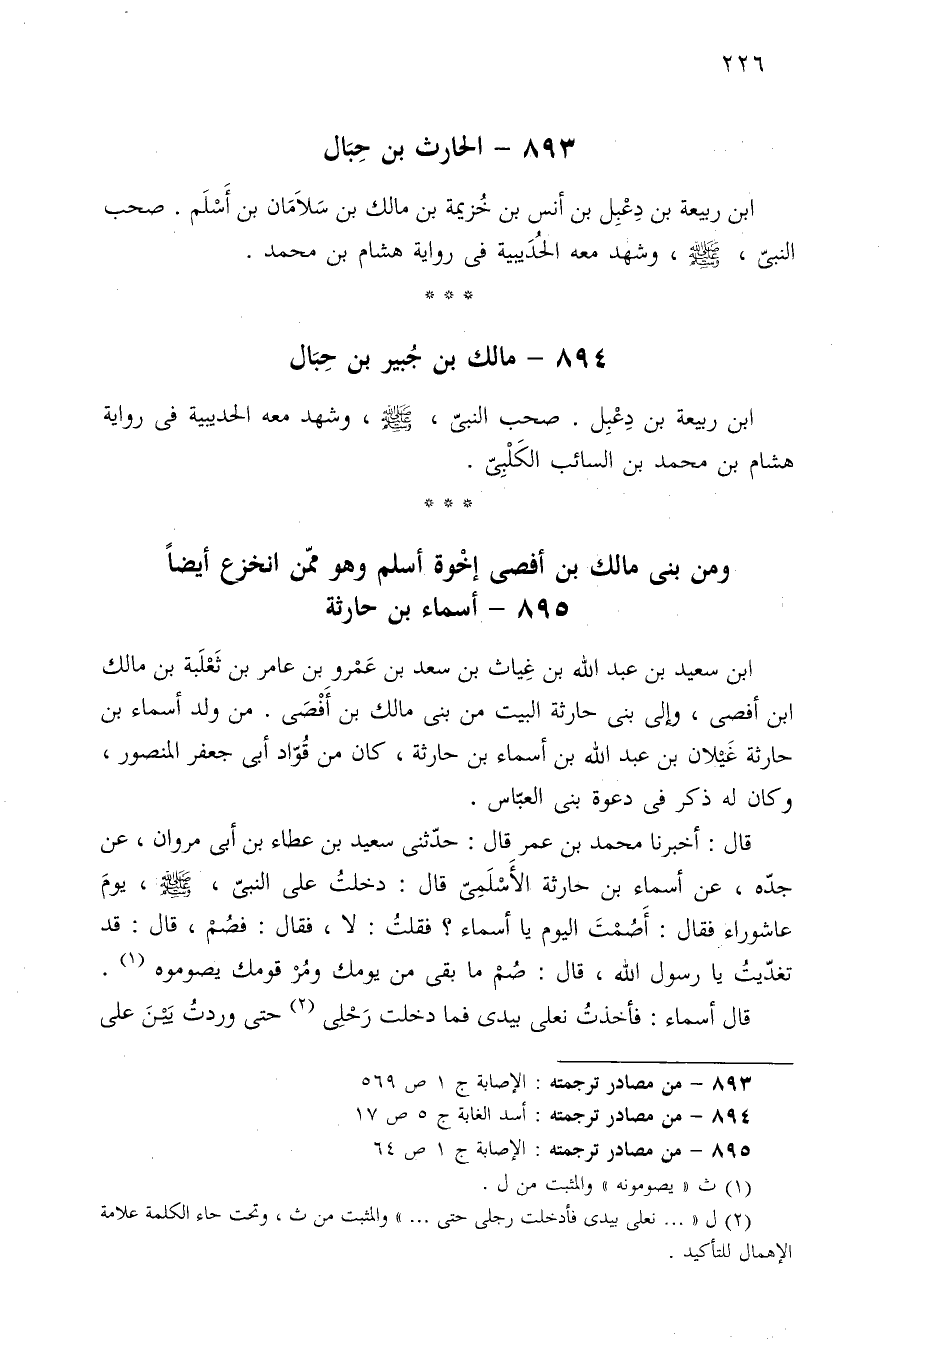 ٢٢٦
٨٩٣ - الحارث بن حِبَال
ابن ربيعة بن دِعْبِل بن أنس بن خُزيمة بن مالك بن سَلاَمَان بن أَسْلَم . صحب
النبىّ ، ﷺ ، وشهد معه الحُدَيبية فى رواية هشام بن محمد .
* * *
٨٩٤ - مالك بن جُبير بن حِبَال
ابن ربيعة بن دِعْبِل . صحب النبىّ ، ﷺ ، وشهد معه الحديبية فى رواية
هشام بن محمد بن السائب الكَلْبِىّ .
* * *
ومن بنى مالك بن أفصى إخْوة أسلم وهو ممّن انخزع أيضاً
٨٩٥ - أسماء بن حارثة
ابن سعيد بن عبد الله بن غِياث بن سعد بن عَمْرو بن عامر بن ثَعْلَبة بن مالك
ابن أفصى ، وإلى بنى حارثة البيت من بنى مالك بن أَفْصَى . من ولد أسماء بن
حارثة غَيْلان بن عبد الله بن أسماء بن حارثة ، كان من قُوّاد أبى جعفر المنصور ،
وكان له ذكر فى دعوة بنى العبّاس .
قال : أخبرنا محمد بن عمر قال : حدّثنى سعيد بن عطاء بن أبى مروان ، عن
جدّه ، عن أسماء بن حارثة الأَسْلَمِىّ قال : دخلتُ على النبىّ ، ﷺ ، يومَ
عاشوراء فقال : أَصُمْتَ اليوم يا أسماء ؟ فقلتُ : لا ، فقال : فصُمْ ، قال : قد
تغدّيتُ يا رسول الله ، قال : صُمْ ما بقى من يومك ومُرْ قومك يصوموه (١) .
قال أسماء : فأخذتُ نعلى بيدى فما دخلت رَحْلِى (٢) حتى وردتُ يَيْنَ على
٨٩٣ - من مصادر ترجمته : الإصابة ج ١ ص ٥٦٩
٨٩٤ - من مصادر ترجمته : أسد الغابة ج ٥ ص ١٧
٨٩٥ - من مصادر ترجمته : الإصابة ج ١ ص ٦٤
(١) ث « يصومونه » والمثبت من ل .
(٢) ل « ... نعلى بيدى فأدخلت رجلى حتى ... » والمثبت من ث ، وتحت حاء الكلمة علامة
الإهمال للتأكيد .